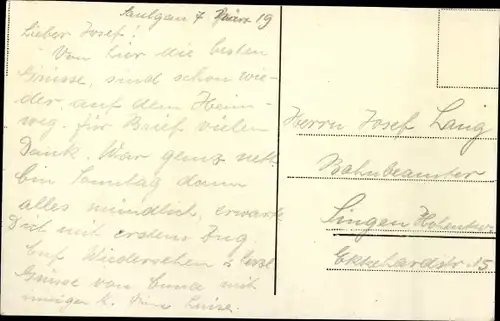 Saulgau 7 März 19
Lieber Josef!
Von hier die besten
Grüsse, sind schon wie-
der auf dem Heim-
weg. Für Brief vielen
Dank. War ganz nett
Am Sonntag dann
alles mündlich, erwarte
Dich mit erstem Zug
Auf Wiedersehen & herzl
Grüsse von Emma mit
innigen K. Deine Luise.
Herrn Josef Laig
Bahnbeamter
Singen Hohentwiel
Ekkehardstr. 15